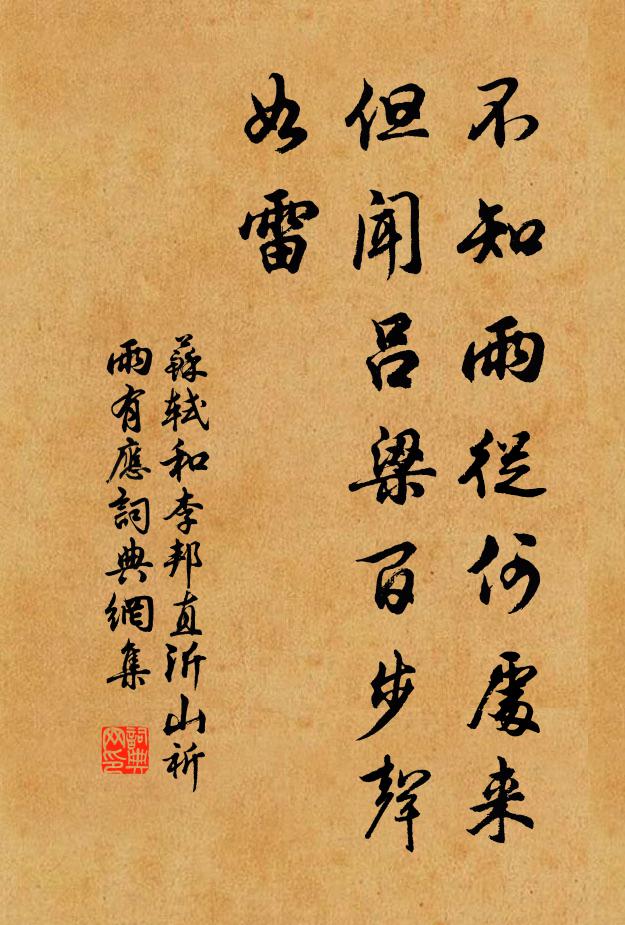 不知雨從何處来
但聞吕梁百步聲
如雷
蘇軾和李邦直沂山祈
雨有應詞典網集
詞典
网印